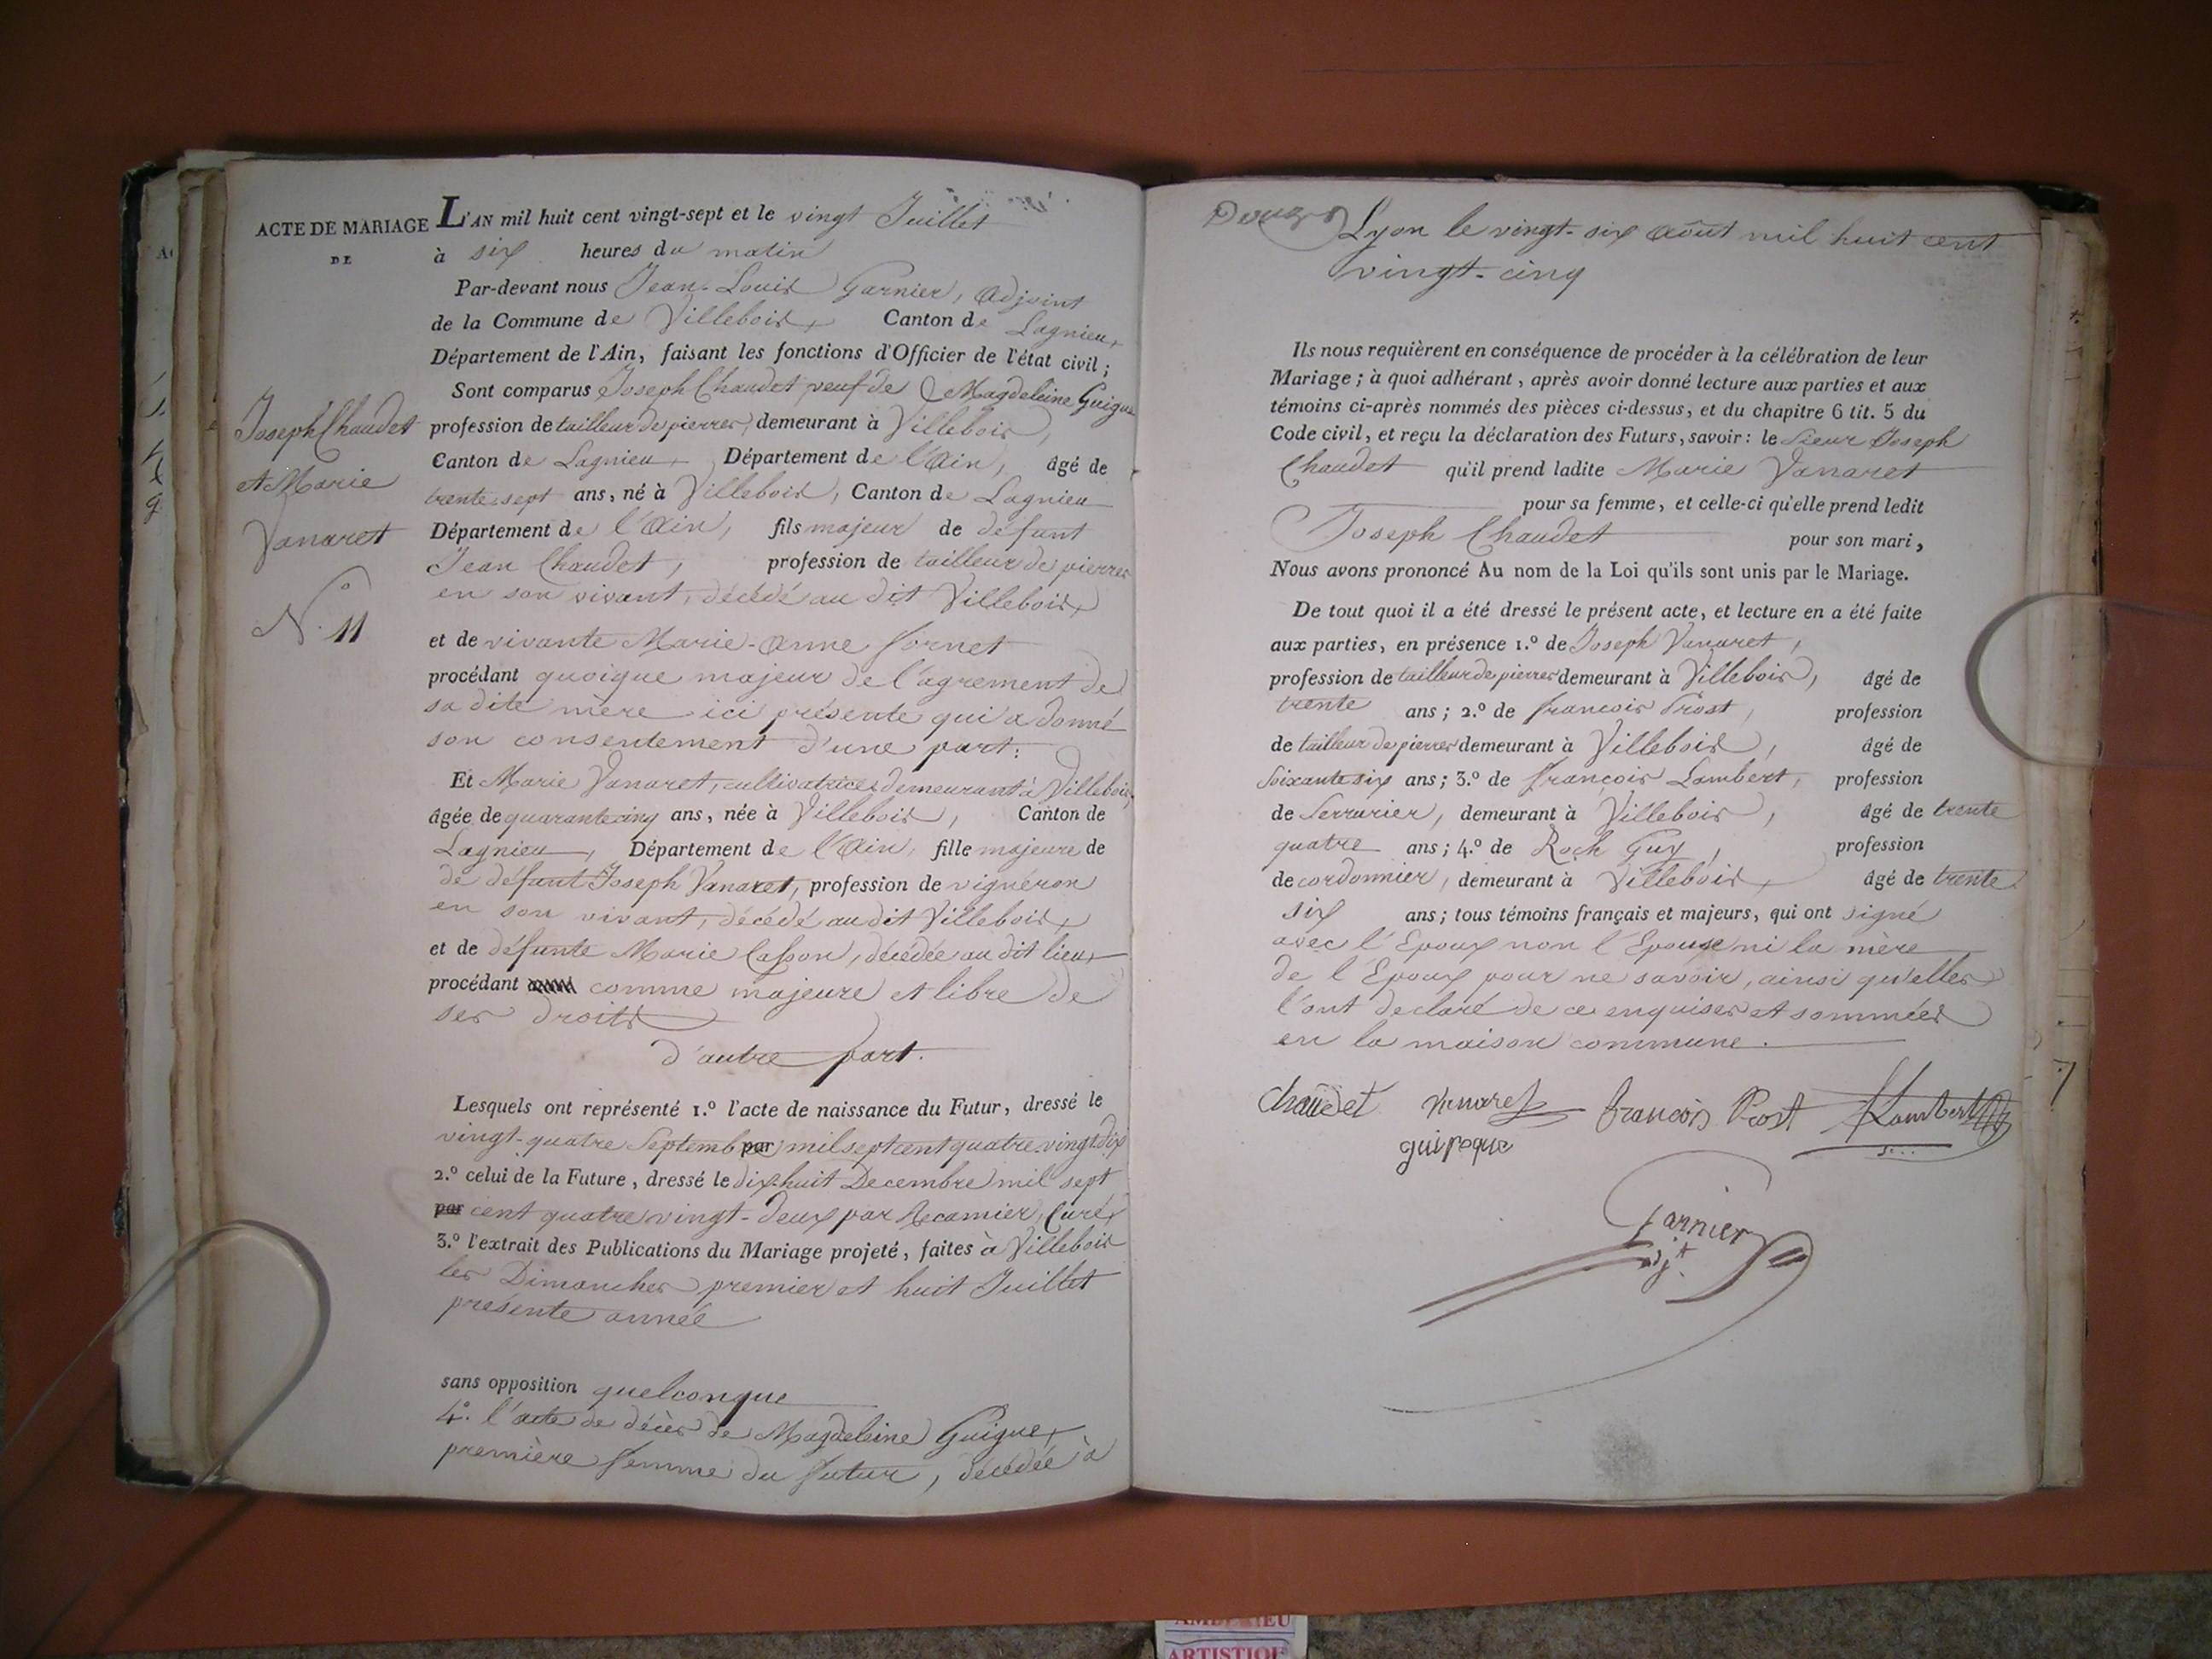 ACTE DE MARIAGE
DE
Joseph Chaudet
et Marie
Vanaret
N.° 11
L'AN mil huit cent vingt-sept et le vingt Juillet
à six heures du matin
Par-devant nous Jean-Louis Garnier, adjoint
de la Commune de Villebois, Canton de Lagnieu,
Département de l'Ain, faisant les fonctions d'Officier de l'état civil;
Sont comparus Joseph Chaudet veuf de Magdeleine Guigue
profession de tailleur de pierres, demeurant à Villebois,
Canton de Lagnieu, Département de l'Ain, âgé de
trente-sept ans, né à Villebois, Canton de Lagnieu
Département de l'Ain, fils majeur de défunt
Jean Chaudet, profession de tailleur de pierres
en son vivant, décédé au dit Villebois,
et de vivante Marie-Anne fornet
procédant quoique majeur de l'agrement de
sa dite mère ici présente qui a donné
son consentement d'une part:
Et Marie Vanaret, cultivatrice, demeurant à Villebois,
âgée de quarante cinq ans, née à Villebois, Canton de
Lagnieu, Département de l'Ain, fille majeure de
de défunt Joseph Vanaret, profession de vigneron
en son vivant, décédé au dit Villebois,
et de défunte Marie Casson, décédée au dit lieu,
procédant comme majeure et libre de
ses droits
d'autre part.
Lesquels ont représenté 1.° l'acte de naissance du Futur, dressé le
vingt-quatre Septembre par mil sept cent quatre-vingt-dix
2.° celui de la Future, dressé le dix-huit Decembre mil sept
par cent quatre vingt-deux par Recamier, Curé,
3.° l'extrait des Publications du Mariage projeté, faites à Villebois
les Dimanches premier et huit Juillet
présente année
sans opposition quelconque
4.° l'acte de décès de Magdeleine Guigue,
première femme du futur, décédée à
Lyon le vingt-six août mil huit cent
vingt-cinq
Ils nous requièrent en conséquence de procéder à la célébration de leur
Mariage; à quoi adhérant, après avoir donné lecture aux parties et aux
témoins ci-après nommés des pièces ci-dessus, et du chapitre 6 tit. 5 du
Code civil, et reçu la déclaration des Futurs, savoir: le Sieur Joseph
Chaudet qu'il prend ladite Marie Vanaret
pour sa femme, et celle-ci qu'elle prend ledit
Joseph Chaudet pour son mari,
Nous avons prononcé Au nom de la Loi qu'ils sont unis par le Mariage.
De tout quoi il a été dressé le présent acte, et lecture en a été faite
aux parties, en présence 1.° de Joseph Vanaret,
profession de tailleur de pierres demeurant à Villebois, âgé de
trente ans; 2.° de françois Prost, profession
de tailleur de pierres demeurant à Villebois, âgé de
Soixante six ans; 3.° de françois Lambert, profession
de Serrurier, demeurant à Villebois, âgé de trente
quatre ans; 4.° de Roch Guy, profession
de cordonnier, demeurant à Villebois, âgé de trente
six ans; tous témoins français et majeurs, qui ont signé
avec l'Epoux non l'Epouse ni la mère
de l'Epoux pour ne savoir, ainsi qu'elles
l'ont declaré de ce enquises et sommées
en la maison commune.
chaudet Vanaret francois Prost Lambert
gui roque
Garnier
adj.t
ARTISTIQUE